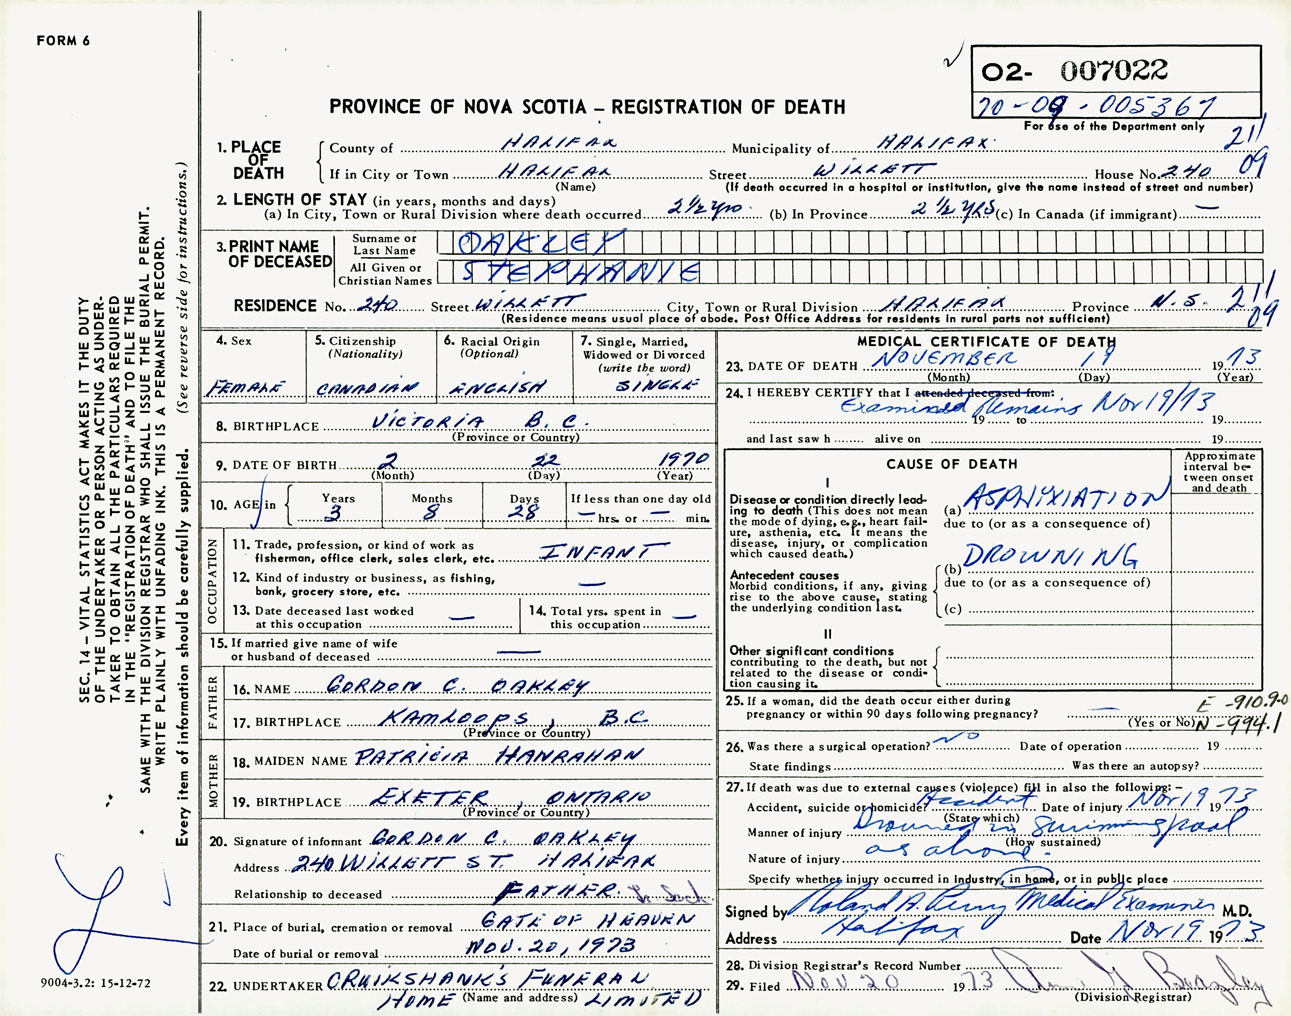 FORM 6
O2- 007022
70-09-005367
PROVINCE OF NOVA SCOTIA – REGISTRATION OF DEATH
For use of the Department only
211
09
1. PLACE OF DEATH
County of HALIFAX Municipality of HALIFAX
If in City or Town HALIFAX Street WILLETT House No. 240
(Name) (If death occurred in a hospital or institution, give the name instead of street and number)
2. LENGTH OF STAY (in years, months and days)
(a) In City, Town or Rural Division where death occurred 2 1/2 yrs. (b) In Province 2 1/2 YRS (c) In Canada (if immigrant) —
3. PRINT NAME OF DECEASED
Surname or Last Name OAKLEY
All Given or Christian Names STEPHANIE
RESIDENCE No. 240 Street WILLETT City, Town or Rural Division HALIFAX Province N.S.
211
09
(Residence means usual place of abode. Post Office Address for residents in rural parts not sufficient)
4. Sex
FEMALE
5. Citizenship
(Nationality)
CANADIAN
6. Racial Origin
(Optional)
ENGLISH
7. Single, Married,
Widowed or Divorced
(write the word)
SINGLE
8. BIRTHPLACE VICTORIA B.C.
(Province or Country)
9. DATE OF BIRTH 2 22 1970
(Month) (Day) (Year)
10. AGE in
Years Months Days If less than one day old
3 8 28 — hrs. or — min.
OCCUPATION
11. Trade, profession, or kind of work as
fisherman, office clerk, sales clerk, etc. INFANT
12. Kind of industry or business, as fishing,
bank, grocery store, etc. —
13. Date deceased last worked
at this occupation —
14. Total yrs. spent in
this occupation —
15. If married give name of wife
or husband of deceased —
FATHER
16. NAME GORDON C. OAKLEY
17. BIRTHPLACE KAMLOOPS, B.C
(Province or Country)
MOTHER
18. MAIDEN NAME PATRICIA HANRAHAN
19. BIRTHPLACE EXETER, ONTARIO
(Province or Country)
20. Signature of informant GORDON C. OAKLEY
Address 240 WILLETT ST. HALIFAX
Relationship to deceased FATHER.
21. Place of burial, cremation or removal GATE OF HEAVEN
Date of burial or removal NOV. 20, 1973
22. UNDERTAKER CRUIKSHANK'S FUNERAL
HOME (Name and address) LIMITED
MEDICAL CERTIFICATE OF DEATH
23. DATE OF DEATH NOVEMBER 19 1973
(Month) (Day) (Year)
24. I HEREBY CERTIFY that I attended deceased from:
Examined Remains Nov 19/73
19 to 19
and last saw h alive on 19
CAUSE OF DEATH
Approximate
interval be-
tween onset
and death
I
Disease or condition directly lead-
ing to death (This does not mean
the mode of dying, e.g., heart fail-
ure, asthenia, etc. It means the
disease, injury, or complication
which caused death.)
(a) ASPHYXIATION
due to (or as a consequence of)
Antecedent causes
Morbid conditions, if any, giving
rise to the above cause, stating
the underlying condition last.
(b) DROWNING
due to (or as a consequence of)
(c)
II
Other significant conditions
contributing to the death, but not
related to the disease or condi-
tion causing it.
25. If a woman, did the death occur either during
pregnancy or within 90 days following pregnancy? —
(Yes or No)
E -910.9-0
N -994.1
26. Was there a surgical operation? NO Date of operation 19
State findings Was there an autopsy?
27. If death was due to external causes (violence) fill in also the following:–
Accident, suicide or homicide? Accident Date of injury Nov 19 1973
(State which)
Manner of injury Drowned in swimming pool
(How sustained)
Nature of injury as above.
Specify whether injury occurred in industry, in home, or in public place
Signed by Roland A. Perry Medical Examiner M.D.
Address Halifax Date Nov 19 1973
28. Division Registrar's Record Number
29. Filed NOV 20 1973
(Division Registrar)
SEC. 14 – VITAL STATISTICS ACT MAKES IT THE DUTY
OF THE UNDERTAKER OR PERSON ACTING AS UNDER-
TAKER TO OBTAIN ALL THE PARTICULARS REQUIRED
IN THE "REGISTRATION OF DEATH" AND TO FILE THE
SAME WITH THE DIVISION REGISTRAR WHO SHALL ISSUE THE BURIAL PERMIT.
WRITE PLAINLY WITH UNFADING INK. THIS IS A PERMANENT RECORD.
Every item of information should be carefully supplied. (See reverse side for instructions.)
9004-3.2: 15-12-72